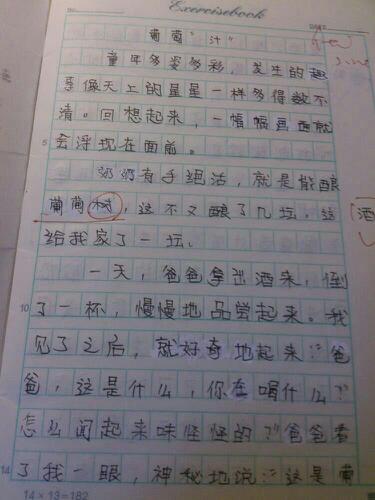 Exercisebook
葡萄"汁"
童年多姿多彩，发生的趣
事像天上的星星一样多得数不
清。回想起来，一幅幅画面就
5
会浮现在面前。
奶奶有手绝活，就是能酿
葡萄树，这不又酿了几坛，送
酒
给我家了一坛。
一天，爸爸拿出酒来，倒
10
了一杯，慢慢地品尝起来。我
见了之后，就好奇地起来："爸
爸，这是什么，你在喝什么？
怎么闻起来味怪怪的？"爸爸看
14
了我一眼，神秘地说："这是葡
14×13=182